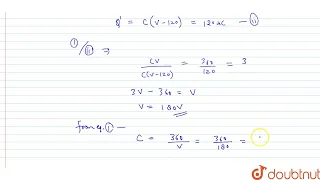 Q' = C(V-120) = 120μC — (ii)
(i)/(ii) ⇒
CV / C(V-120) = 360/120 = 3
3V - 360 = V
V = 180V
from eq. (i) —
C = 360/V = 360/180 =
doubtnut